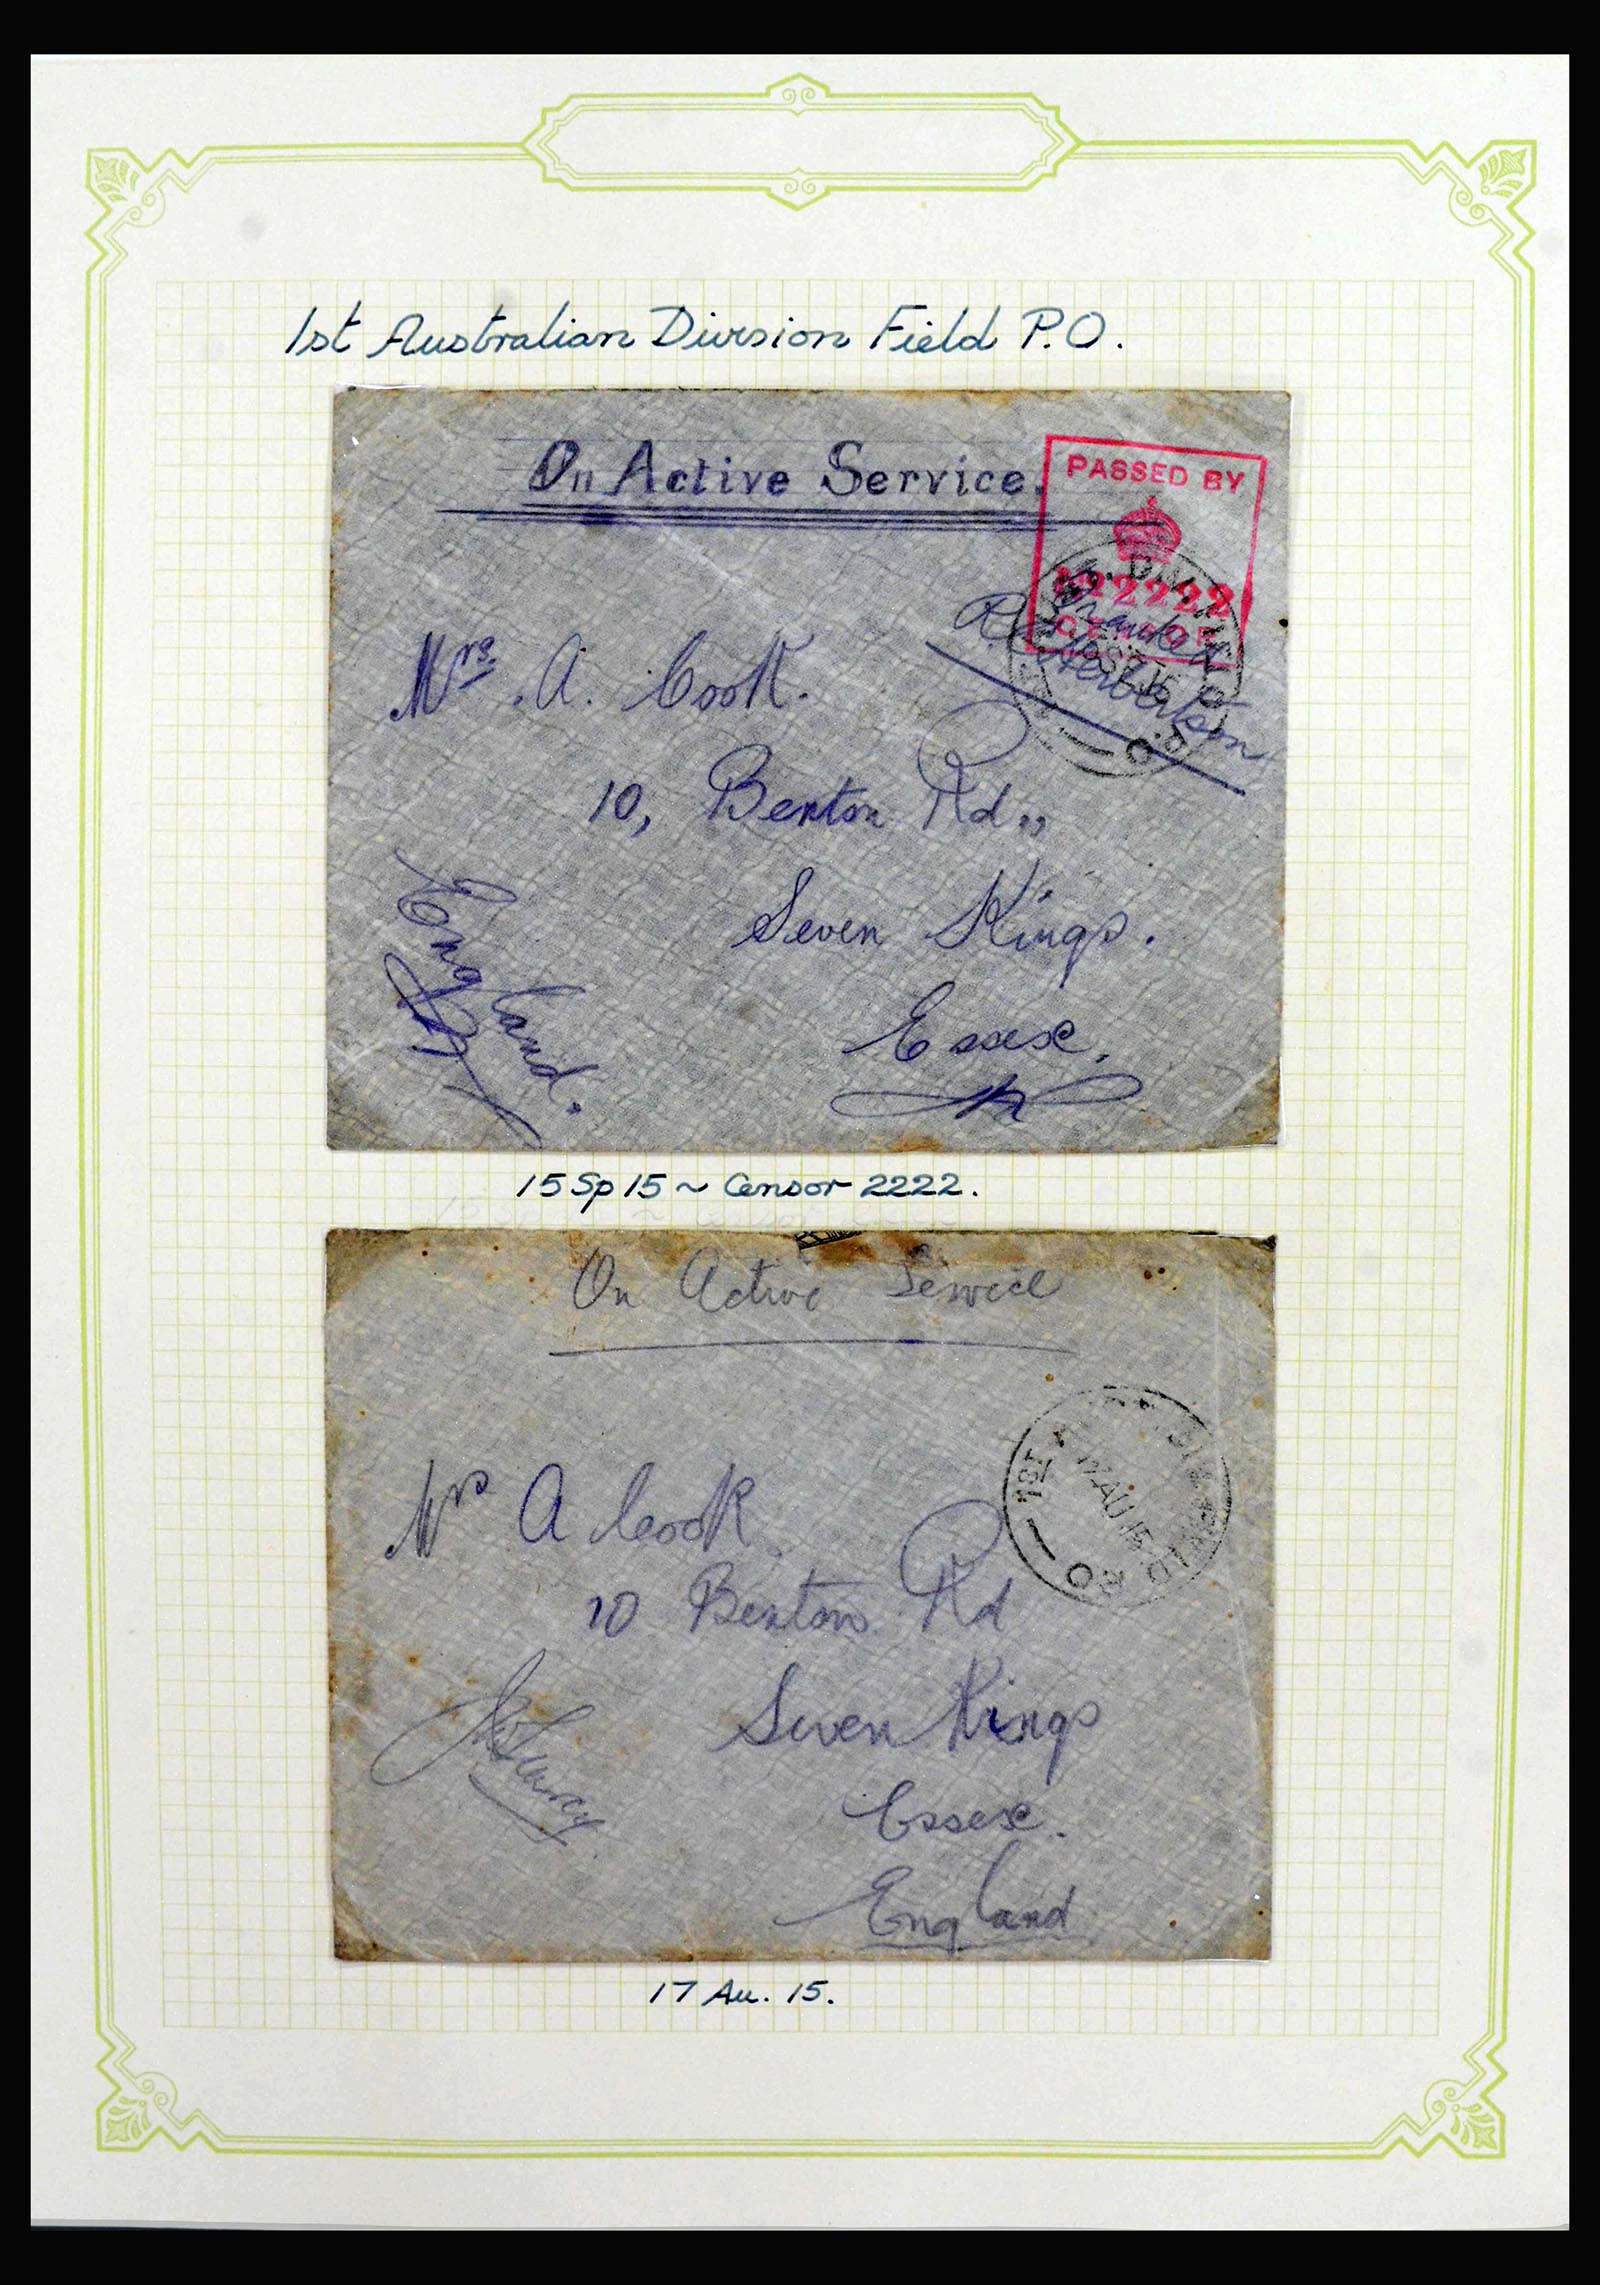 1st Australian Division Field P.O.
On Active Service.
PASSED BY
No 2222
CENSOR
Mrs. A. Cook.
10, Benton Rd.,,
Seven Kings.
Essex.
England.
15 Sp 15 ~ Censor 2222.
On Active Service
1ST
FIELD PO
17 AU 15
Mrs A Cook.
10 Benton Rd
Seven Kings
Essex.
England
17 Au. 15.